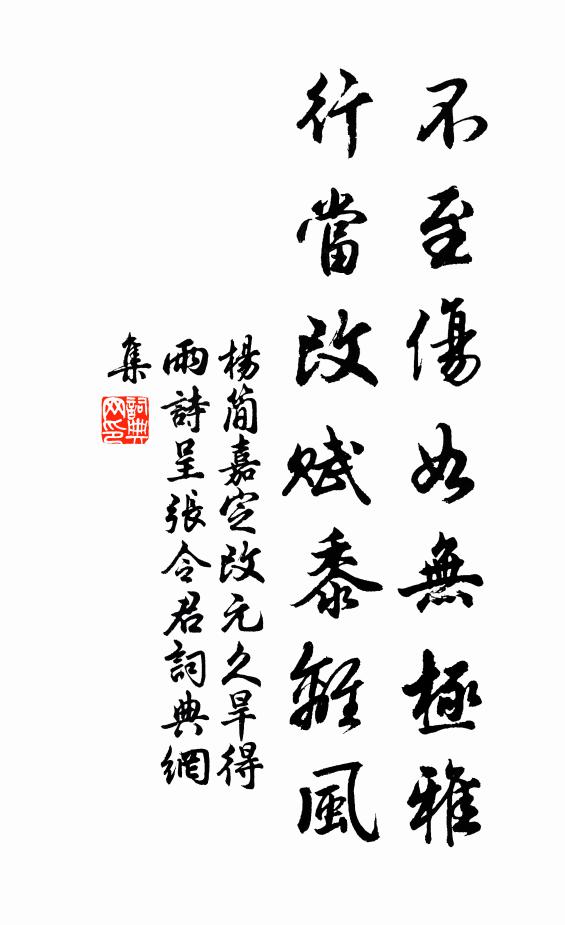 不至傷如無極雅
行當改賦黍離風
楊簡嘉定改元久旱得
雨詩呈張令君詞典網
集
詞典
网印